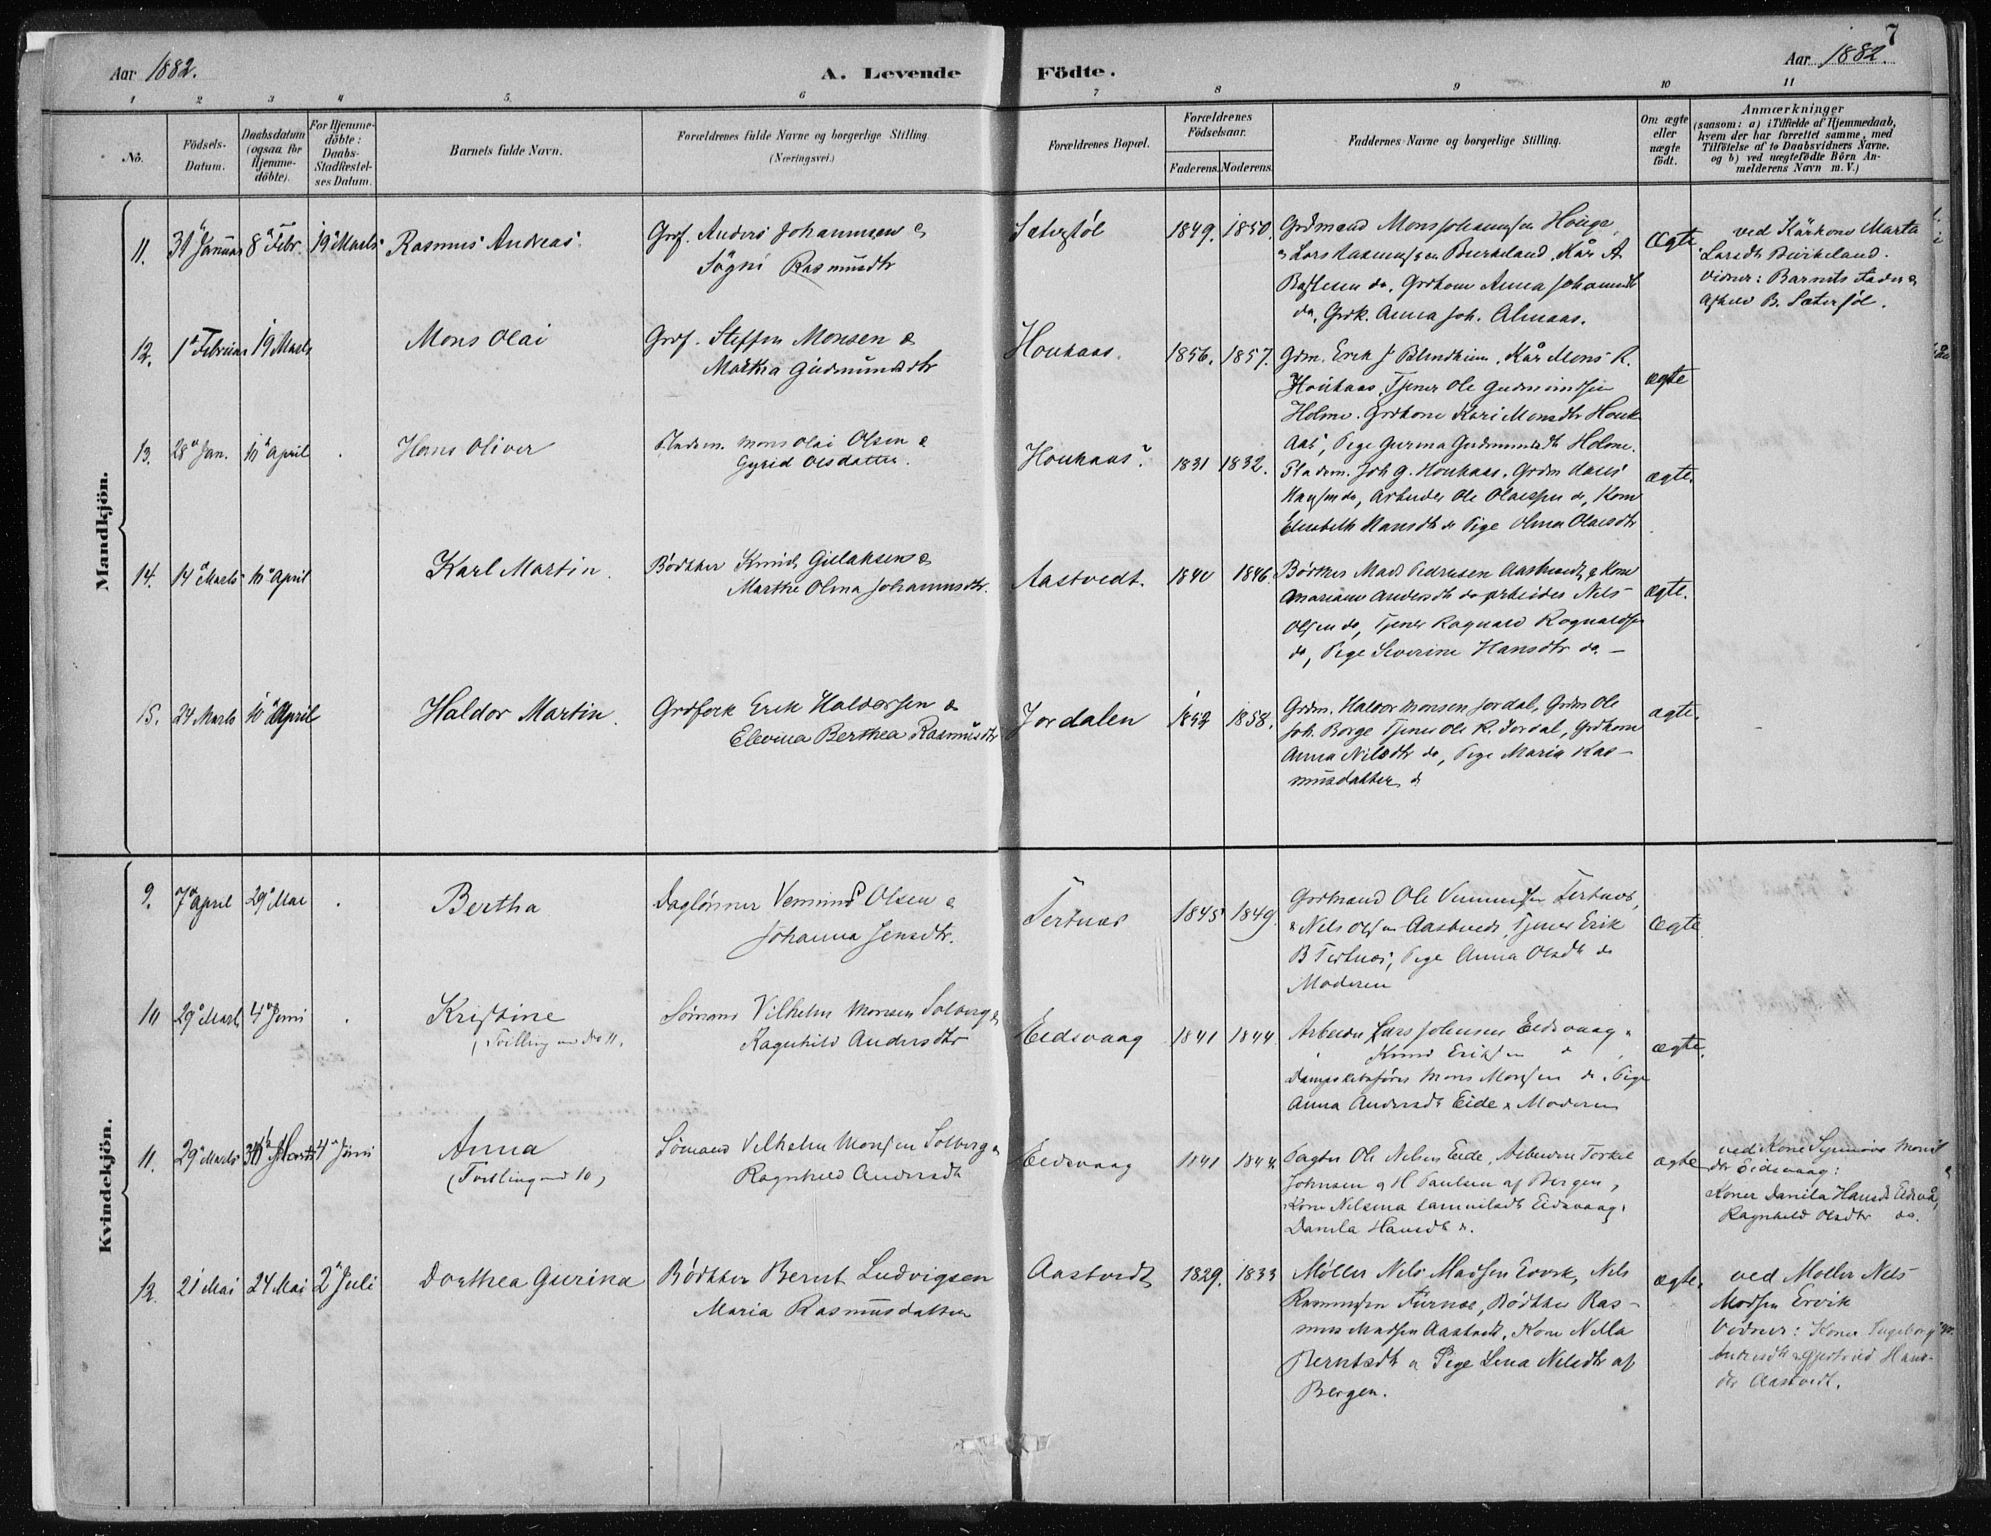 7
Aar 1882.
A. Levende Födte.
Aar 1882.
1 2 3 4 5. 6 7 8 9 10 11
No.
Födsels-Datum.
Daabsdatum (ogsaa for Hjemme-döbte).
For Hjemme-döbte: Daabs-Stadfæstel-ses Datum.
Barnets fulde Navn.
Forældrenes fulde Navne og borgerlige Stilling.
(Næringsvei.)
Forældrenes Bopæl.
Forældrenes Födselsaar.
Faderens. Moderens.
Faddernes Navne og borgerlige Stilling.
Om ægte eller uægte födt.
Anmærkninger
(saasom: a) i Tilfælde af Hjemmedaab,
hvem der har forrettet samme, med
Tilföielse af to Daabsvidners Navne.
og b) ved uægtefödte Börn An-
melderens Navn m. V.)
Mandkjön.
11. 31 Januar 8 Febr. 19 Marts Rasmus Andreas. Grdf. Anders Johannesen &
Sögni Rasmusdtr
Sæterstöl 1849. 1850.
Grdmand Mons Johannesen Hauge,
& Lars Rasmussen Birkeland, Kår A
da, Grdkone Anna Johannesdtr
da, Grdk. Anna Joh. Almaas.
Ægte
ved Kårkone Marta
Larsdtr Birkeland.
Vidner: Barnets Fader &
12. 1 Februar 19 Marts Mons Olai Grdf. Steffen Monsen &
Martha Gudmundsdtr
Houkaas. 1856. 1857.
Grdm. Erik J Blindheim. Kår Mons R.
Houkaas. Tjener Ole Gudmundsen
Holme. Grdkone Kari Monsdtr Houk
aas, Pige Gurina Gudmundsdtr Holme.
ægte
13. 28 Jan. 10 April Hans Oliver Pladsm. Mons Olai Olsen &
Gyrid Olsdatter.
Houkaas. 1831 1832.
Pladsm. Joh G. Houkaas. Grdm Hans
Hansen do, Arbeider Ole Olaisen do, Kone
Elisabeth Hansdtr do Pige Olina Olaisdtr
ægte.
14. 14 Marts 10 April Karl Martin. Bödtker Knud Gullaksen &
Marthe Olina Johannesdtr.
Aastvedt. 1840 1846.
Bödtker Mads Pedersen Aastvedt, & Kone
Mariane Andersdtr do Arbeider Nels
Olsen do, Tjener Ragnald Rognaldsen
do, Pige Severine Hansdtr do. —
ægte.
15. 24 Marts 10 April Haldor Martin. Grdfolk Erik Haldorsen &
Elevina Berthea Rasmusdtr
Jordalen 1852 1858.
Grdm. Haldor Monsen Jordal, Grdm Ole
Joh. Borge Tjener Ole R. Jordal, Grdkone
Anna Nilsdtr do, Pige Maria Ras-
musdatter do
ægte.
Kvindekjön.
9. 7 April 29 Mai Bertha Daglönner Vemund Olsen &
Johanna Jensdtr.
Tertnæs 1845 1849.
Grdmand Ole Vemundsen Tertnæs,
& Nels Olsen Aastvedt, Tjener Erik
B Tertnæs, Pige Anna Olsdtr do
Moderen
Ægte
10 29 Marts 4 Juni Kristine
(Tvilling med No 11.
Sømand Vilhelm Monsen Solberg &
Ragnhild Andersdtr
Eidsvaag 1841 1844.
Arbeider Lars Johnsen Eidsvaag &
Knud Eriksen do
Dampskibsförer Mons Monsen do. Pige
Anna Andersdtr Eide & Moderen
ægte.
11. 29 Marts 4 Juni Anna
(Tvilling med 10)
Sømand Vilhelm Monsen Solberg &
Ragnhild Andersdtr
Eidsvaag 1841 1844.
Ole Nelsen Eide, Arbeider Torkel
Johnsen & H Paulsen af Bergen,
Kone Nelsina Samuelsdtr Eidsvaag,
Danila Hansdtr do.
ægte
ved Kone Synneve Mons
dtr Eidsvaag:
Koner Danila Hansdtr Eidsvåg,
Ragnhild Olsdtr do.
12. 21 Mai 24 Mai 2 Juli Dorthea Gurina Bödtker Bernt Ludvigsen
Maria Rasmusdatter
Aastvedt 1829. 1833
Møller Nels Madsen Ervik, Nels
Rasmussen Furnæs, Bödtker Ras-
mus Madsen Aastvedt, Kone Nella
Berntsdtr & Pige Lina Nelsdtr af
Bergen.
ægte.
ved Møller Nels
Madsen Ervik
Vidner: Kone Ingeborg
Andersdtr & Gjertrud Hans-
dtr Aastvedt.